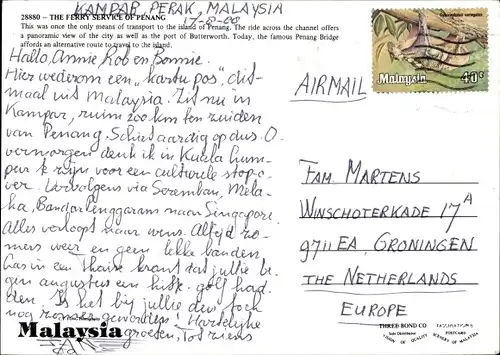 KAMPAR, PERAK, MALAYSIA
17-8-88
28880 – THE FERRY SERVICE OF PENANG
This was once the only means of transport to the island of Penang. The ride across the channel offers
a panoramic view of the city as well as the port of Butterworth. Today, the famous Penang Bridge
affords an alternative route to travel to the island.
Hallo, Annie, Rob en Bonnie.
Hier wederom een „kartu pos”, dit-
maal uit Malaysia. Zit nu in
Kampar, ruim 200 km ten zuiden
van Penang. Schiet aardig op dus. O-
vermorgen denk ik in Kuala Lum-
pur te zijn voor een culturele stop-o-
ver. Vervolgens via Seremban, Mela-
ka, Bandar Penggaram naar Singapore.
Alles verloopt naar wens. Altijd zo-
mers weer en geen lekke banden.
Las in een Thaise krant dat jullie be-
gin augustus een hittegolf had-
den. Is het bij jullie dus toch
nog zomer geworden! Hartelijke
groeten, tot ziens
Malaysia
Malaysia 40¢
AIRMAIL
FAM. MARTENS
WINSCHOTERKADE 17A
9711 EA, GRONINGEN
THE NETHERLANDS
EUROPE
THREE BOND CO